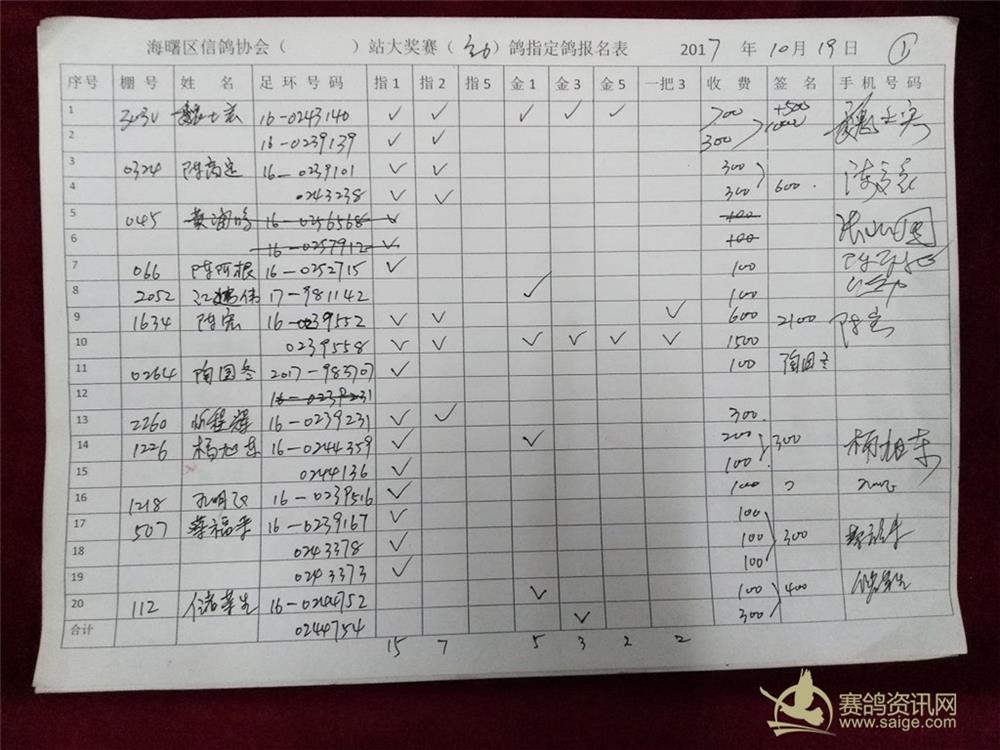 海曙区信鸽协会（ ）站大奖赛（ ）鸽指定鸽报名表 2017 年 10月 19日 ①
序号 棚 号 姓 名 足 环 号 码 指1 指2 指5 金1 金3 金5 一把3 收 费 签 名 手 机 号 码
1 16-0243140 ✓ ✓ ✓ ✓ ✓ 700 +500
2 16-0239139 ✓ ✓ 300 1000
3 0324 16-0239101 ✓ ✓ 300
4 0243238 ✓ ✓ 300 600
5 045 16-0256568 ✓ 100
6 16-0257912 ✓ 100
7 066 陈阿根 16-0252715 ✓ 100
8 2052 17-981142 ✓ 100
9 1634 陈宏 16-0239552 ✓ ✓ ✓ 600 2100 陈宏
10 0239558 ✓ ✓ ✓ ✓ ✓ ✓ 1500
11 0264 陶国冬 2017-983707 ✓ 100 陶国冬
12 16-0239231
13 2260 16-0239231 ✓ ✓ 300
14 1226 杨旭东 16-0244359 ✓ ✓ 200 300 杨旭东
15 0244136 ✓ 100
16 1218 孔明飞 16-0239516 ✓ 100
17 507 16-0239167 ✓ 100
18 0243378 ✓ 100 300
19 0243373 ✓ 100
20 112 16-0244752 ✓ 100 400
合计 0244754 ✓ 300
15 7 5 3 2 2
赛鸽资讯网
www.saige.com